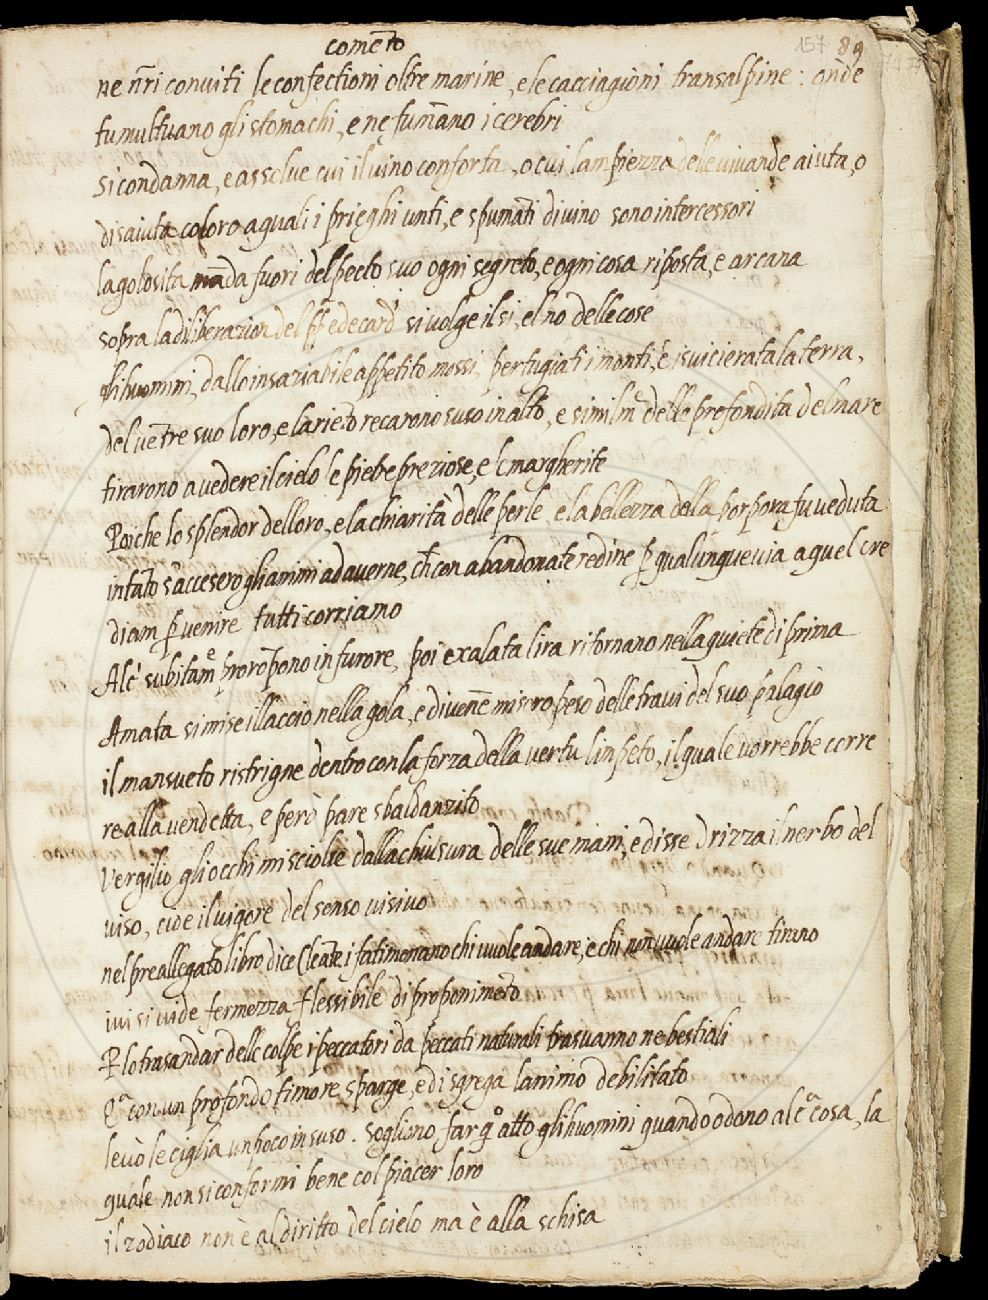 157 89
comēto
ne n̄ri conviti le confectioni oltre marine, e le cacciagioni transalpine: onde
tumultuano gli stomachi, e nę fum̄ano i cerebri
si condanna, e assolve cui il vino conforta, o cui lampiezza delle vivande aiuta, o
disaiuta coloro a quali i prieghi unti, e spumāti di vino sono intercessori
la golosita māda fuori del pecto suo ogni segreto, e ogni cosa riposta, e arcana
sopra la diliberazion del si volge il si, el no delle cose
gli huomini, dallo insaziabile appetito mossi, pertugiati i monti, e isvicierata la terra,
del vētre suo loro, e lariēto recarono suso in alto, e similm̄ᵉ delle profondita del mare
tirarono a vedere il cielo le piebe preziose, e le margherite
Poiche lo splendor delloro, e la chiarità delle perle, e la bellezza della porpora fu veduta
intāto s'accesero gli animi ad averne, ch̄ con abandonate redine ꝑ qualunque via a quel cre
diam ꝑvenire tutti corriamo
Alc̄ subitam̄ᵉ prorōpono in furore, poi exalata lira ritornano nella quiete di prima
Amata si mise il laccio nella gola, e divēne misero peso delle travi del suo palagio
il mansueto ristrigne dentro con la forza della vertu linpeto, il quale vorrebbe corre
re alla vendetta, e però pare sbaldanzito
Vergilio gli occhi mi sciolse dalla chiusura delle sue mani, e disse drizza il nerbo del
viso, cioe il vigore del senso visivo
nel preallegato libro dice Cleāte, i fati menano chi vuole andare, e chi non vuole andare tirano
ivi si vide fermezza flessibile di proponimēto
ꝑ lo trasandar delle colpe i peccatori da peccati naturali trasvanno ne bestiali
Qᵃ con un profondo timore, sparge, e disgrega lanimo debilitato
levò le ciglia un poco in suso. Sogliono far qᵒ atto gli huomini quando odono alcᵃ cosa, la
quale non si conformi bene col piacer loro
il zodiaco non è al diritto del cielo ma è alla schisa